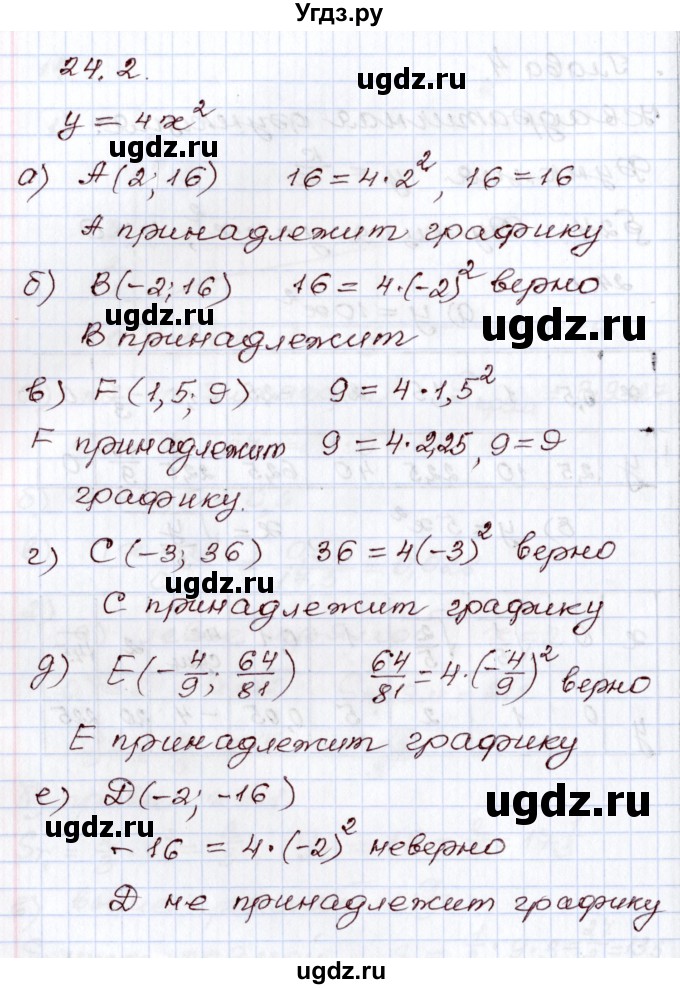 Угдз.ру
24.2.
y = 4x²
а) A(2; 16) 16 = 4·2², 16 = 16
A принадлежит графику
б) B(-2; 16) 16 = 4·(-2)² верно
B принадлежит
в) F(1,5; 9) 9 = 4·1,5²
F принадлежит 9 = 4·2,25, 9 = 9
графику.
г) C(-3; 36) 36 = 4(-3)² верно
C принадлежит графику
д) E(-4/9; 64/81) 64/81 = 4·(-4/9)² верно
E принадлежит графику
е) D(-2; -16)
-16 = 4·(-2)² неверно
D не принадлежит графику
ugdz.ru
ugdz.ru
ugdz.ru
ugdz.ru
ugdz.ru
ugdz.ru
ugdz.ru
ugdz.ru
ugdz.ru